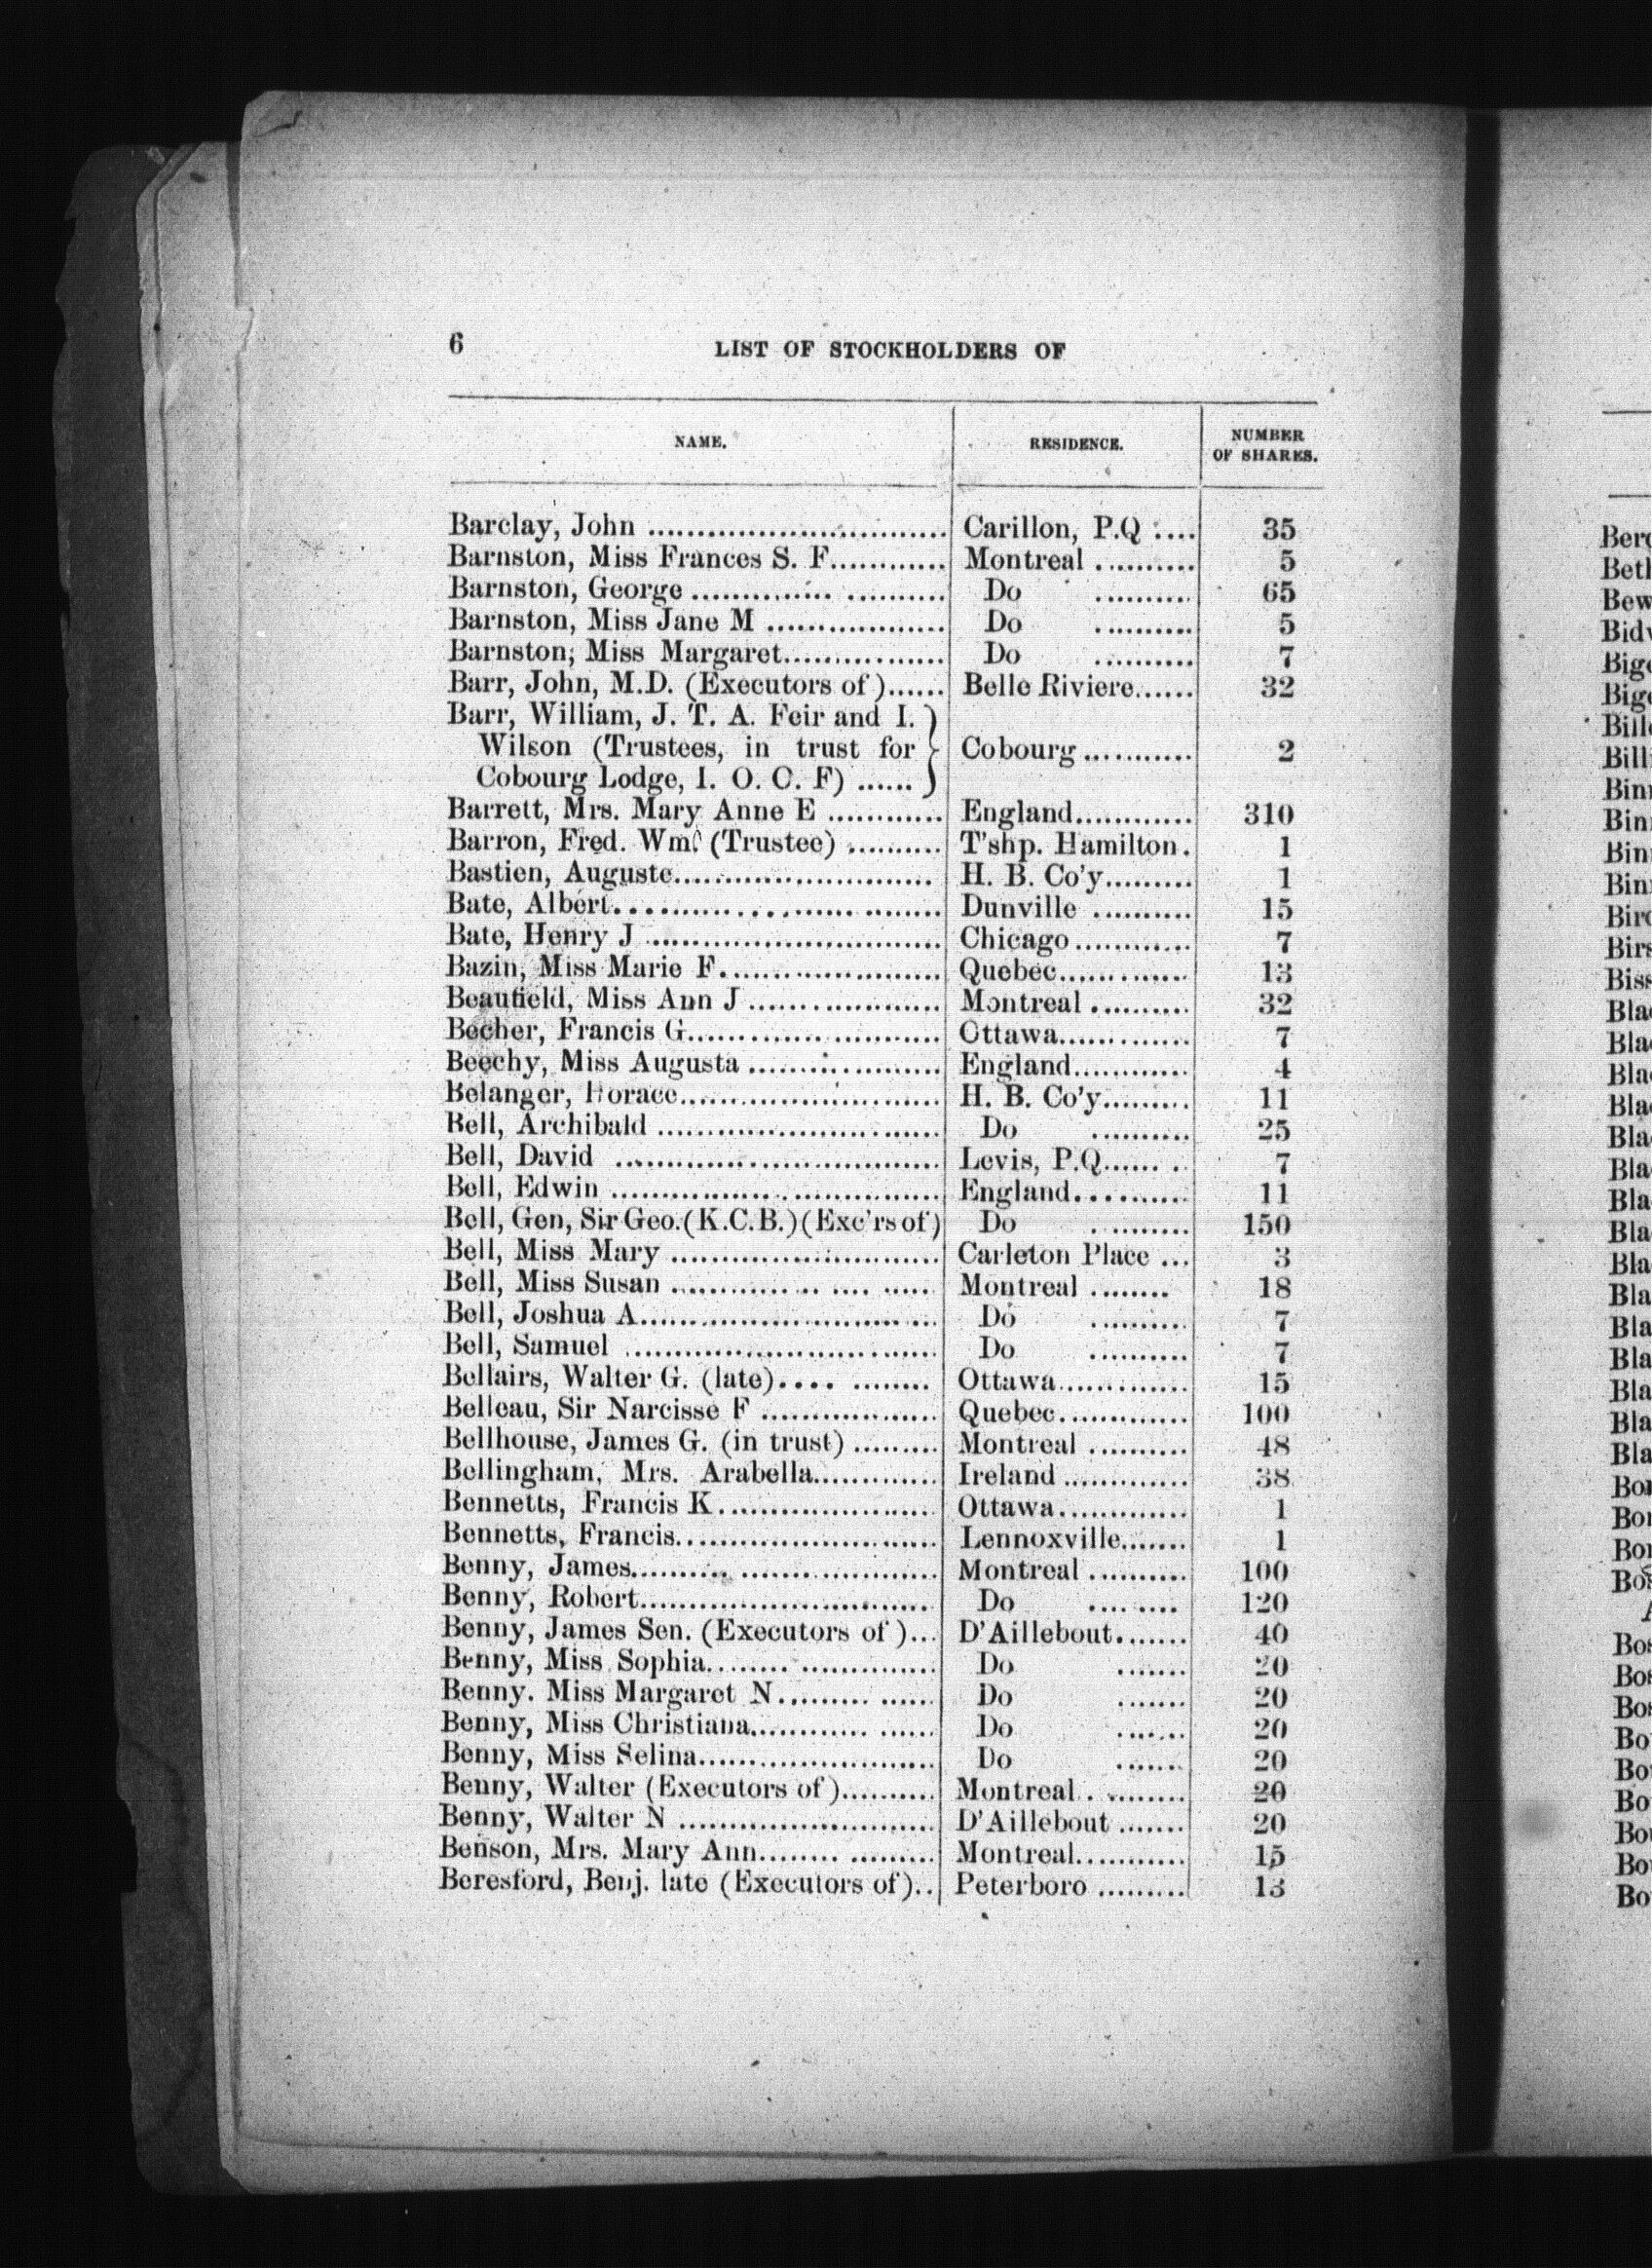 6 LIST OF STOCKHOLDERS OF
NAME. RESIDENCE. NUMBER OF SHARES.
Barclay, John .............................. Carillon, P.Q .... 35
Barnston, Miss Frances S. F............ Montreal .......... 5
Barnston, George ......................... Do .......... 65
Barnston, Miss Jane M .................. Do .......... 5
Barnston, Miss Margaret................ Do .......... 7
Barr, John, M.D. (Executors of)...... Belle Riviere...... 32
Barr, William, J. T. A. Feir and I.
Wilson (Trustees, in trust for Cobourg ........... 2
Cobourg Lodge, I. O. O. F) ......
Barrett, Mrs. Mary Anne E ............ England............ 310
Barron, Fred. Wm. (Trustee) .......... T'shp. Hamilton. 1
Bastien, Auguste.......................... H. B. Co'y......... 1
Bate, Albert................................. Dunville .......... 15
Bate, Henry J ............................. Chicago............ 7
Bazin, Miss Marie F...................... Quebec............. 13
Beaufield, Miss Ann J ................... Montreal .......... 32
Becher, Francis G......................... Ottawa............. 7
Beechy, Miss Augusta ................... England............ 4
Belanger, Horace.......................... H. B. Co'y......... 11
Bell, Archibald ............................ Do .......... 25
Bell, David ................................ Levis, P.Q...... . 7
Bell, Edwin ................................ England........... 11
Bell, Gen, Sir Geo.(K.C.B.)(Exc'rs of) Do .......... 150
Bell, Miss Mary ........................... Carleton Place ... 3
Bell, Miss Susan .......................... Montreal ........ 18
Bell, Joshua A............................. Do .......... 7
Bell, Samuel ............................... Do .......... 7
Bellairs, Walter G. (late).... ........ Ottawa............. 15
Belleau, Sir Narcisse F ................. Quebec............. 100
Bellhouse, James G. (in trust) ......... Montreal .......... 48
Bellingham, Mrs. Arabella............. Ireland ............. 38
Bennetts, Francis K...................... Ottawa............. 1
Bennetts, Francis.......................... Lennoxville....... 1
Benny, James............................... Montreal .......... 100
Benny, Robert.............................. Do .... .... 120
Benny, James Sen. (Executors of)... D'Aillebout....... 40
Benny, Miss Sophia........ .............. Do ....... 20
Benny. Miss Margaret N......... ...... Do ....... 20
Benny, Miss Christiana............ ...... Do ....... 20
Benny, Miss Selina........................ Do ....... 20
Benny, Walter (Executors of).......... Montreal.. ........ 20
Benny, Walter N .......................... D'Aillebout ....... 20
Benson, Mrs. Mary Ann........ ......... Montreal........... 15
Beresford, Benj. late (Executors of).. Peterboro ......... 13